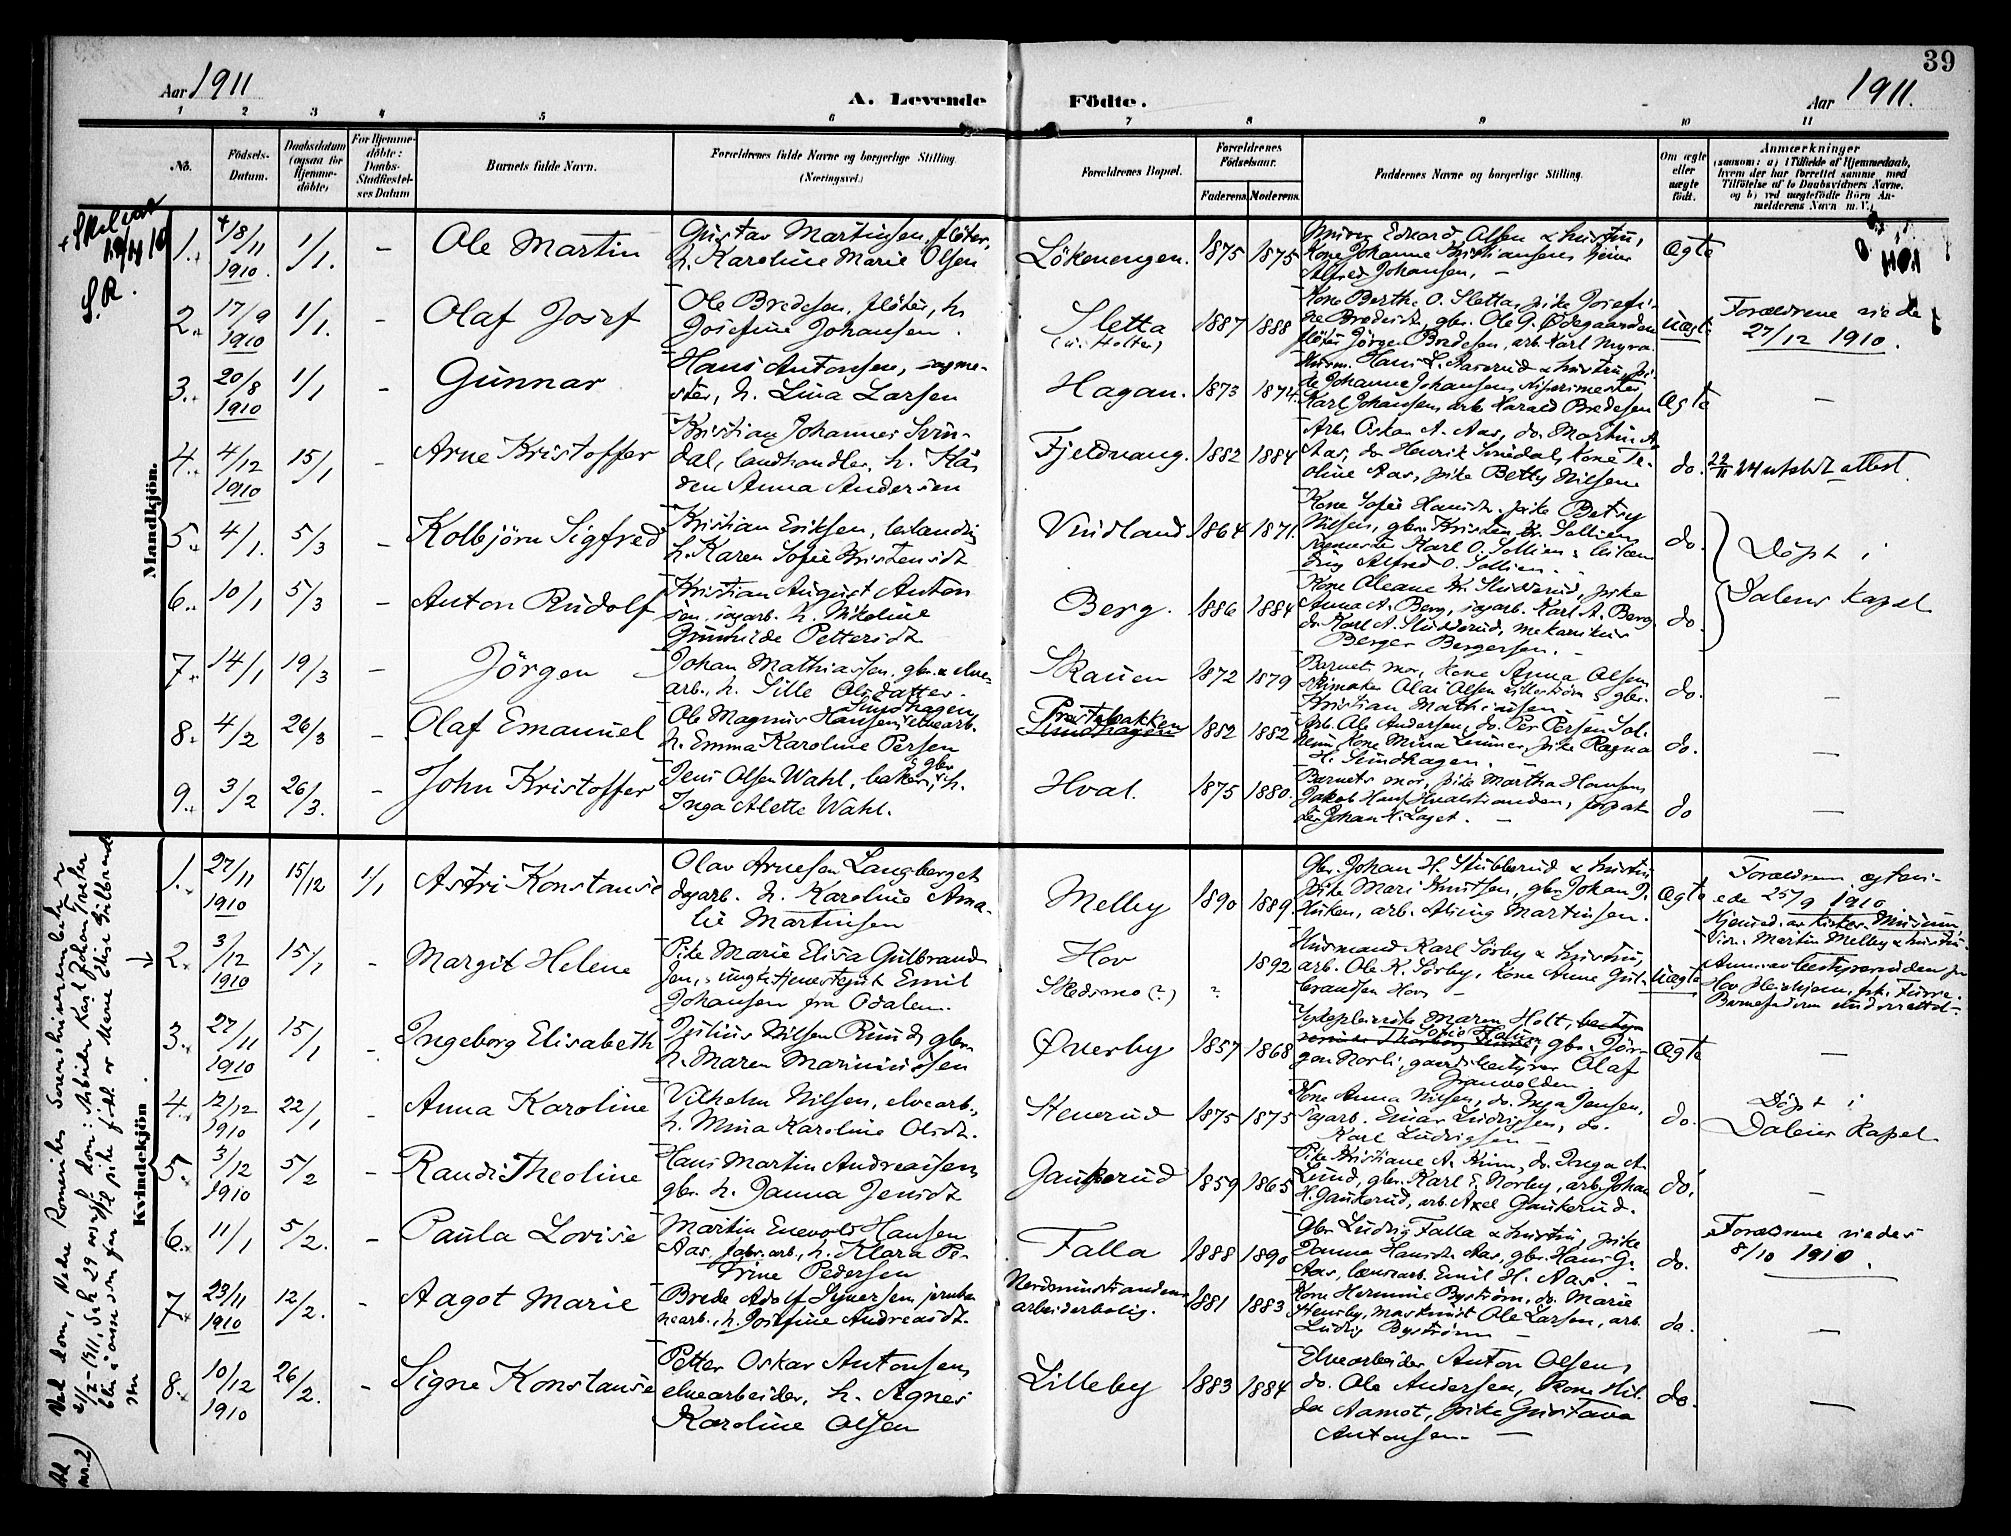 39
Aar 1911
A. Levende
Födte.
Aar 1911.
1 2 3 4 5 6 7 8 9 10 11
No.
Födsels-
Datum.
Daabsdatum
(ogsaa for
Hjemme-
döbte)
For Hjemme-
döbte:
Daabs-
Stadfæstel-
ses Datum
Barnets fulde Navn.
Forældrenes fulde Navne og borgerlige Stilling.
(Næringsvei.)
Forældrenes Bopæl.
Forældrenes
Födselsaar.
Faderens. Moderens.
Faddernes Navne og borgerlige Stilling.
Om ægte
eller
uægte
födt.
Anmærkninger
(saasom: a) i Tilfælde af Hjemmedaab,
hvem der har forrettet samme, med
Tilföielse af to Daabsvidners Navne,
og b) ved uægtefödte Börn An-
melderens Navn m. V.)
S.R.
Mandkjön.
1. 4/8/11 1910. 1/1. – Ole Martin
Gustav Martinsen, flöter,
h. Karoline Marie Olsen
Lökenengen. 1875 1875
Eduard Olsen & hustru,
Kone Johanne Kristiansen,
Alfred Johansen. –
ægte
2. 17/9 1910 1/1. – Olaf Josef
Ole Bredesen, flöter, h.
Josefine Johansen.
Sletta
(u. Holter)
1887 1888
Kone Berthe O. Sletta, pike Josefi-
ne Bredesen, gbr. Ole G. Ødegaarden
flöter Jörgen Bredesen, arb. Karl Myra.
uægte
Forældrene viede
27/12 1910.
3. 20/8 1910 1/1 – Gunnar
Hans Antonsen, sagme-
ster, h. Lina Larsen
Hagan. 1873 1874.
de Johanne Johansen,
Karl Johansen, arb. Harald Bredesen
ægte –
4. 4/12 1910 15/1 – Arne Kristoffer
Kristian Johannes Svin-
dal, landhandler, h. Hás
den Anna Andersen
Fjeldvang. 1882 1884
Arb. Oskar A. Aas, do. Martin A.
Aas, do Henrik Svindal, Kone
oline Aas, pike Betty Nilsen
do.
22/11 24 utstedt attest.
5. 4/1. 5/3 – Kolbjörn Sigfred
Kristian Eriksen,
h. Karen Sofie Kristensdt.
Vindland 1864 1871.
Kone Sofie Hansdt. pike Betsy
Nilsen, gbr. Kristen Kr. Sollien
Karl O. Sollien &
Alfred O. Sollien. –
do.
Döpt i
Dalens kapel
6. 10/1 5/3 – Anton Rudolf
Kristian August Anton
sen, sagarb. h. Nikoline
Gunhilde Pettersdt.
Berg. 1886 1884
Kone Oleane Kr. Studderud, pike
Anna A. Berg, sagarb. Karl A. Berg
do. Karl A. Studderud, mekaniker
Berger Bergersen. –
do.
7. 14/1 19/3 – Jörgen
Johan Mathiassen, gbr. & elve-
arb., h. Sille Olsdatter.
Skauen 1872 1879
Barnets mor, Kone Anna Olsen,
skomaker Olai Olsen
Kristian Mathiasen –
do. –
8. 4/2 26/3 – Olaf Emanuel
Ole Magnus Hansen Sundhagen elvearb.
h. Emma Karoline Persen
Prestebakken
Sundhagen
1852 1882
Arb. Ole Andersen, do. Per Persen Sol-
heim, Kone Mina Lunner, pike Ragna
H. Sundhagen.
do. –
9. 3/2 26/3. – John Kristoffer
Jens Olsen Wahl, baker & gbr. h.
Inga Alette Wahl.
Hval. 1875 1880.
Barnets mor, pike Martha Hansen
Jakob Hans Hvalstranden, forpak-
ter Johan H. Laget. –
do –
Kvindekjön
1. 27/11 1910 15/12 1/1 Astri Konstanse
Olav Arnesen Langberget
dagarb. h. Karoline Ama-
lie Martinsen
Melby 1890 1889
Gbr. Johan H. Stubberud & hustru,
pike Mari Knutsen, gbr. Johan J.
Huken, arb. Alving Martinsen.
ægte
Forældrene egtevi-
ede 25/9 1910
Hjemmed. av kirkes.
Vidn. Martin Melby & hustru.
2. 3/12 1910 15/1 – Margit Helene
Pike Marie Elisa Gulbrand
sen, & ungk. tjenestegut Emil
Johansen fra Odalen.
Hov
Skedsmo (?)
? 1892
Husmand Karl Sörby & hustru,
arb. Ole K. Sörby, Kone Anne Gul-
brandsen Hov –
uægte
Anm. av bestyrerinden for
Barnefaderen underrettet –
3. 27/11 1910 15/1 – Ingeborg Elisabeth
Julius Nilsen Ruud, gbr.
h. Maren Mariniusen
Øverby 1857 1868
Sykepleierske Maren Holt,
gbr. Jör-
gen Norli, gaardsbestyrer Olaf
Granvolden
ægte –
4. 12/12 1910 22/1 – Anna Karoline
Vilhelm Nilsen, elvearb.,
h. Mina Karoline Olsdt.
Stenerud 1875 1875
Kone Anna Nilsen, do. Inga Jensen,
Sagarb. Einar Ludvigsen, do.
Karl Ludvigsen –
do.
Döpt i
Dalens Kapel
5. 3/12 1910 5/2 – Randi Theoline
Hans Martin Andreassen,
gbr. h. Janna Jensdt.
Gaukerud 1859 1865
Pike Kristiane A. Krim, do. Inga A.
Lund, gbr. Karl E. Norby, arb. Johan
H. Gaukerud, arb. Axel Gaukerud.
do. –
6. 11/1 5/2. – Paula Lovise
Martin Enevold Hansen
Aas, fabr. arb., h. Klara Pe-
trine Pedersen
Falla 1888 1890
Gbr. Ludvig Falla & hustru, pike
Janna Hansdt. Aas, gbr. Hans G.
Aas, lænsearb. Emil H. Aas. –
do.
Forældrene viedes
8/10 1910.
7. 23/11 1910 12/2. – Aagot Marie
Brede Adolf Syversen, jernba-
nearb., h. Josefine Andreasdt.
Nerdrumstrandens
arbeiderbolig.
1881 1883
Kone Hermine Byström, do. Marie
Stensby, maskinist Ole Larsen, arb.
Ludvig Byström –
do. –
8. 10/12 1910 26/2. – Signe Konstanse
Petter Oskar Antonsen,
elvearbeider, h. Agnes
Karoline Olsen
Lilleby 1883 1884
Elvearbeider Anton Olsen,
do. Ole Andersen, Kone Hil-
da Aamot, pike Gustava
Antonsen. –
do. –
Ad nr. 2) Ved dom, Nedre Romerikes Sorenskriverembede
21/2-1911, Sak 29
Arbeider Karl Johan